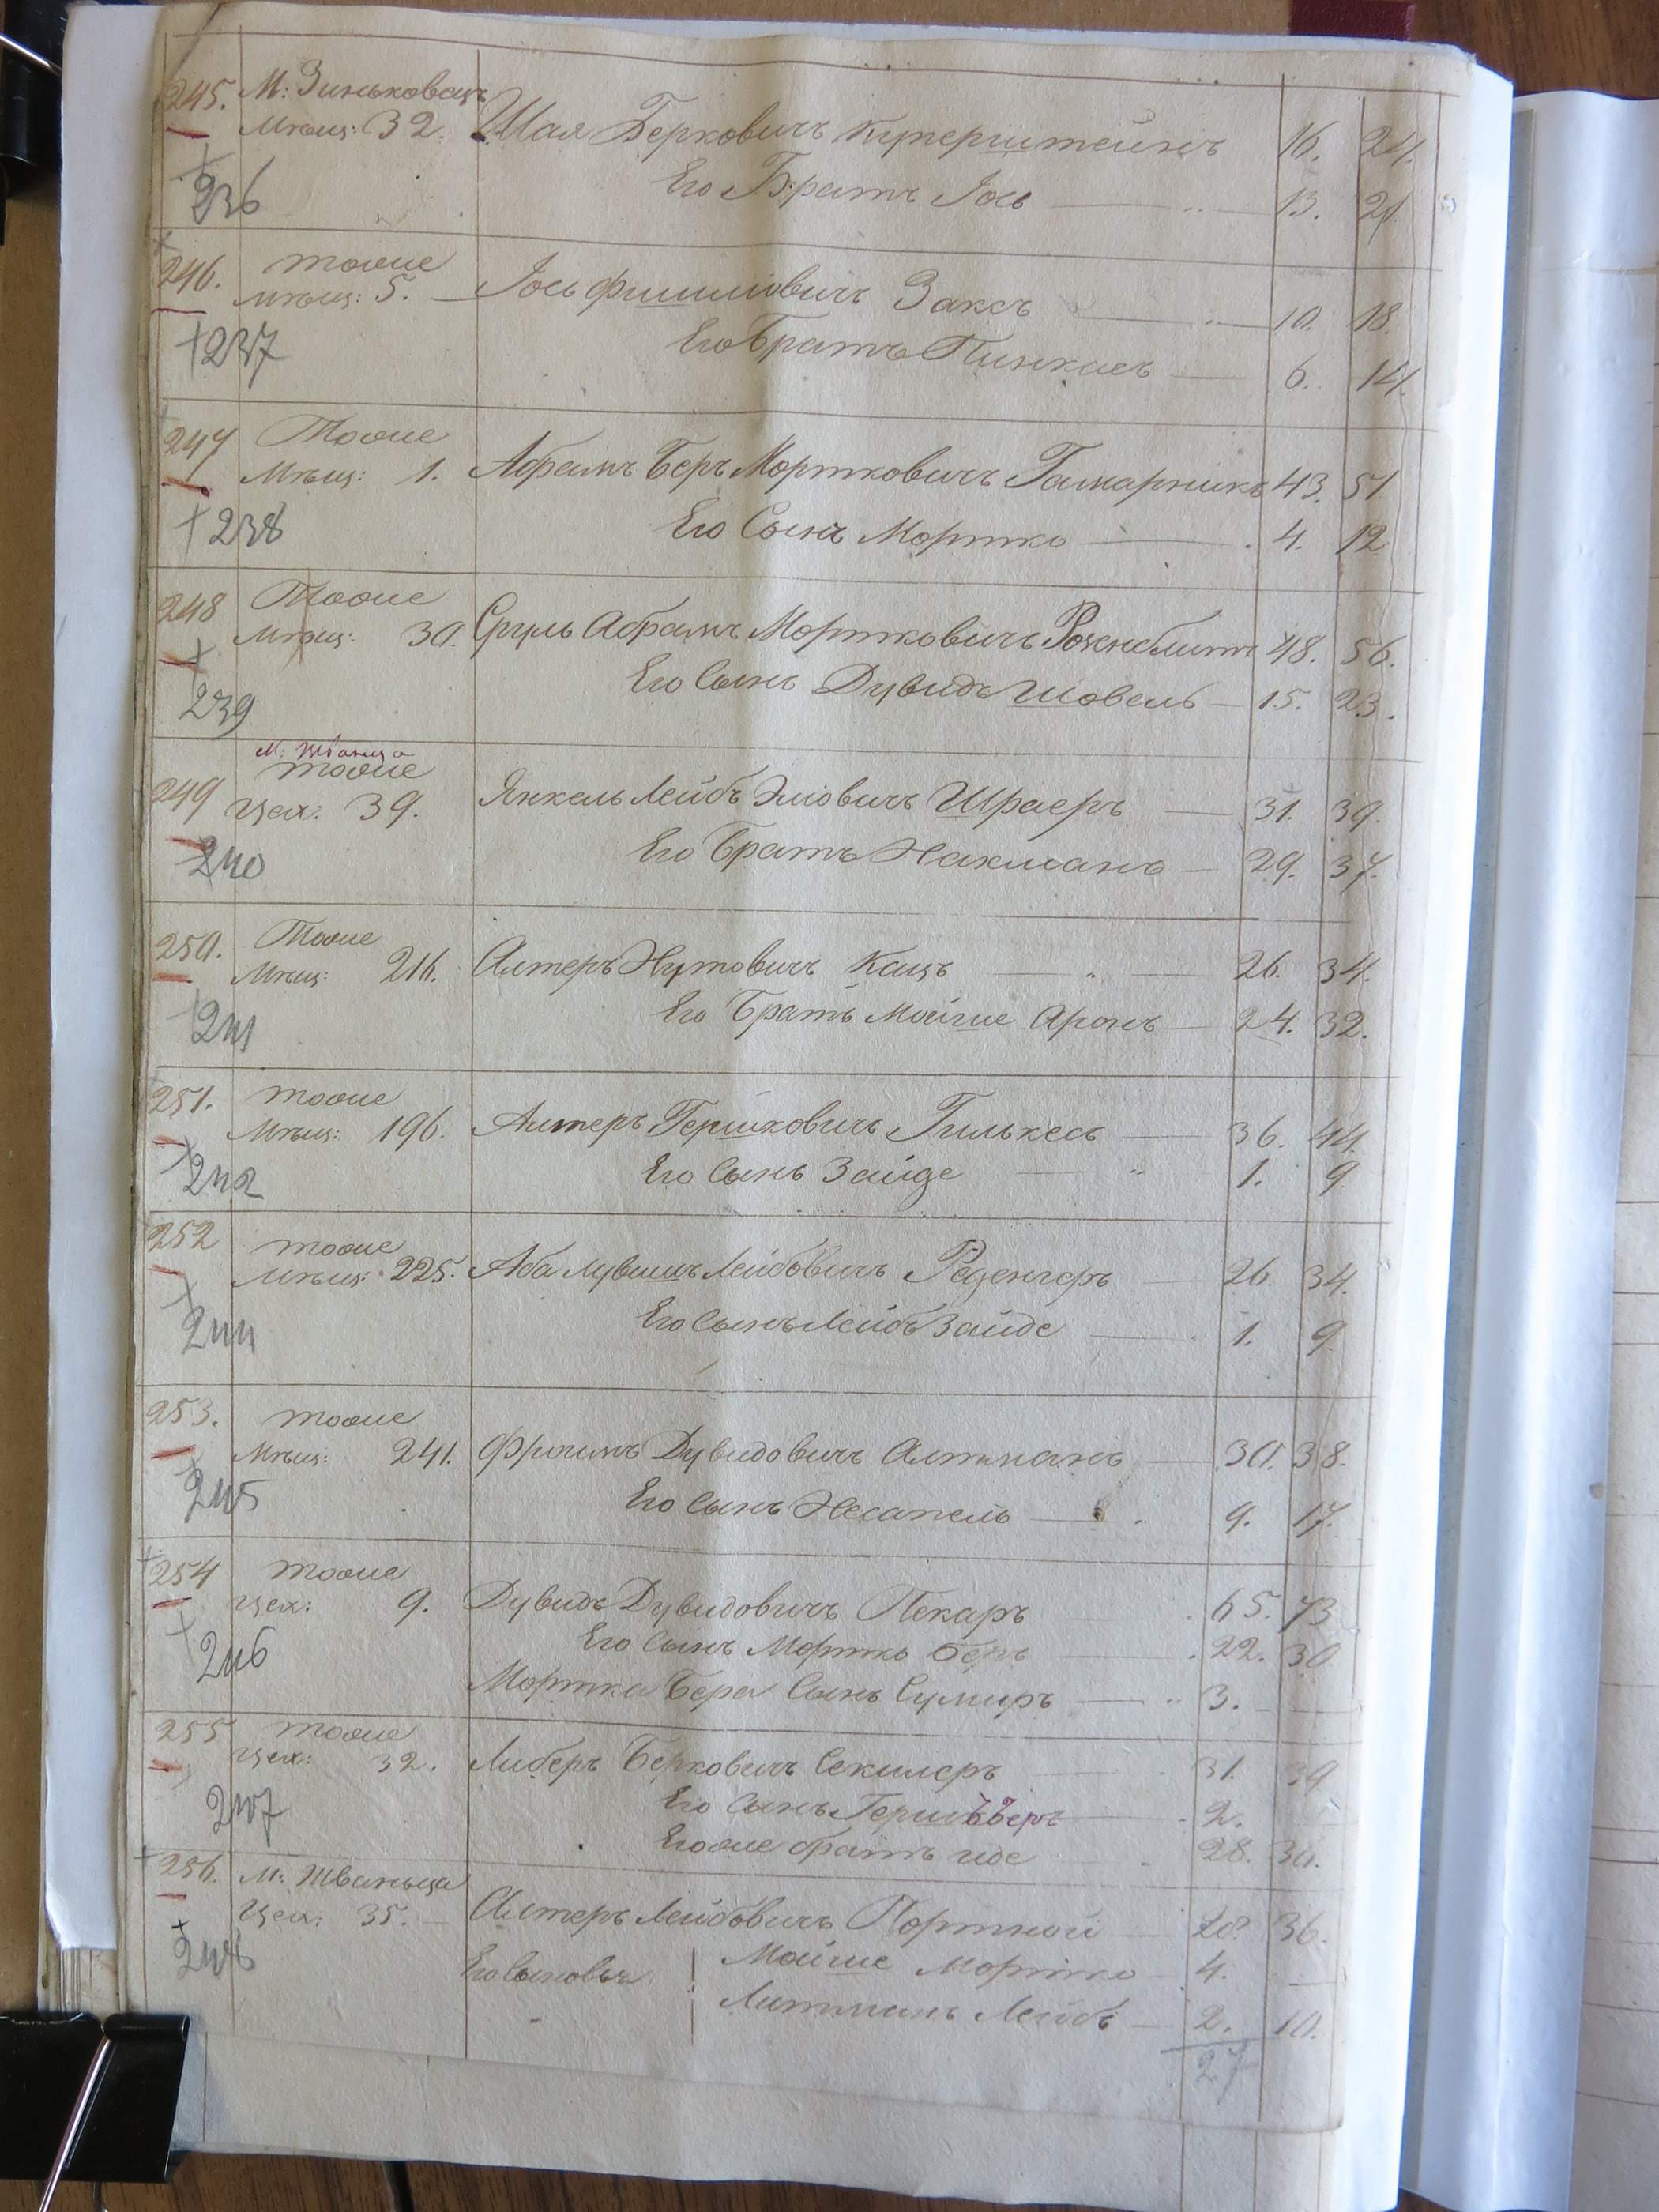 245. М: Зиньковецъ
Мѣщ: 32. Шая Берковичъ Куперштейнъ 16. 24.
236 Его Братъ Іось 13. 21
246. тоже
мѣщ: 5. Іось Фишліовичъ Заксъ 10. 18.
+237 Его Братъ Пинкасъ 6. 14.
247 Тоже
Мѣщ: 1. Абрамъ Беръ Мортковичъ Гамарникъ 43. 51
+238 Его Сынъ Мортко 4. 12
248 Тоже
Мѣщ: 30. Сруль Абрамъ Мортковичъ Розенблитъ 48. 56.
239 Его Сынъ Дувидъ Шовель 15. 23.
м: Жванца
249 тоже
Цех: 39. Янкель Лейбъ Эліовичъ Шраеръ 31. 39.
240 Его Братъ Нахманъ 29. 37.
250. Тоже
Мѣщ: 216. Алтеръ Нутовичъ Кацъ 26. 34.
241 Его Братъ Мойше Аронъ 24. 32.
251. тоже
Мѣщ: 196. Алтеръ Гершковичъ Гилькесъ 36. 44.
242 Его Сынъ Зайде 1. 9.
252 тоже
Мѣщ: 225. Аба Лейбовичъ 26. 34.
244 Его Сынъ Лейбъ Зайде 1. 9.
253. тоже
Мѣщ: 241. Фроимъ Дувидовичъ Алтманъ 30. 38.
245 Его Сынъ 9. 17.
254 тоже
Цех: 9. Дувидъ Дувидовичъ Пекаръ 65. 73
246 Его Сынъ Мортко Беръ 22. 30
Мортка Бера Сынъ Сумиръ 3.
255 тоже
Цех: 32. Либеръ Берковичъ Секилеръ 31. 39
247 Его Сынъ Гершъ Беръ 2.
Егоже братъ Иде 28. 36.
256. М: Жваньца
Цех: 35. Алтеръ Лейбовичъ Портной 28 36.
248 Его Сыновья Мойше Мортко 4.
Литманъ Лейбъ 2. 10.
27